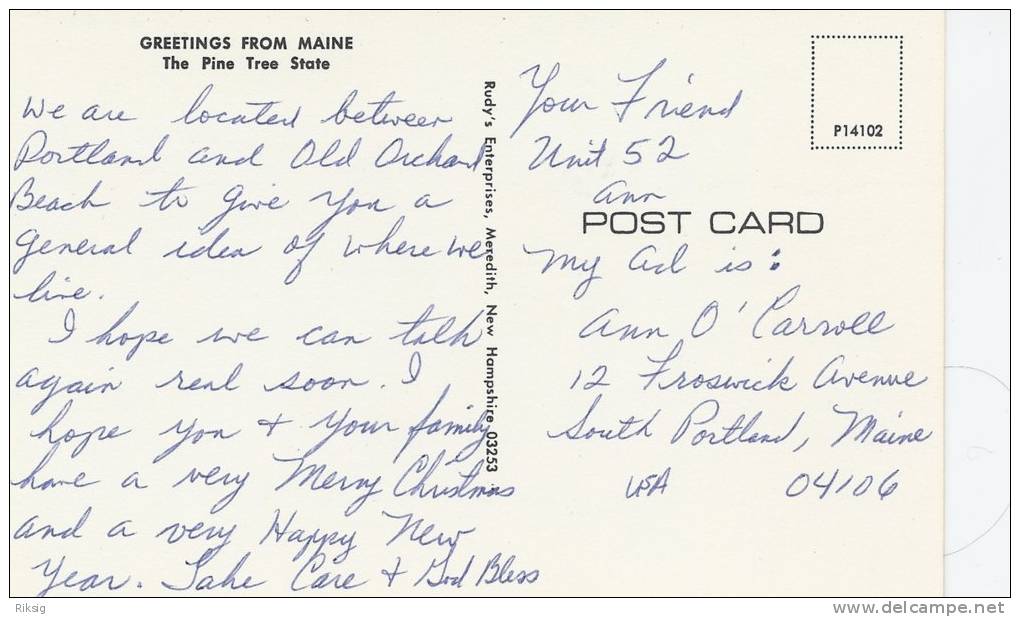 GREETINGS FROM MAINE
The Pine Tree State
We are located between
Portland and Old Orchard
Beach to give you a
general idea of where we
live.
I hope we can talk
again real soon. I
hope you & your family
have a very Merry Christmas
and a very Happy New
Year. Take Care & God Bless
Rudy's Enterprises, Meredith, New Hampshire 03253
Your Friend
Unit 52
Ann
P14102
POST CARD
My Ad is:
Ann O'Carroll
12 Froswick Avenue
South Portland, Maine
USA 04106
Riksig
www.delcampe.net